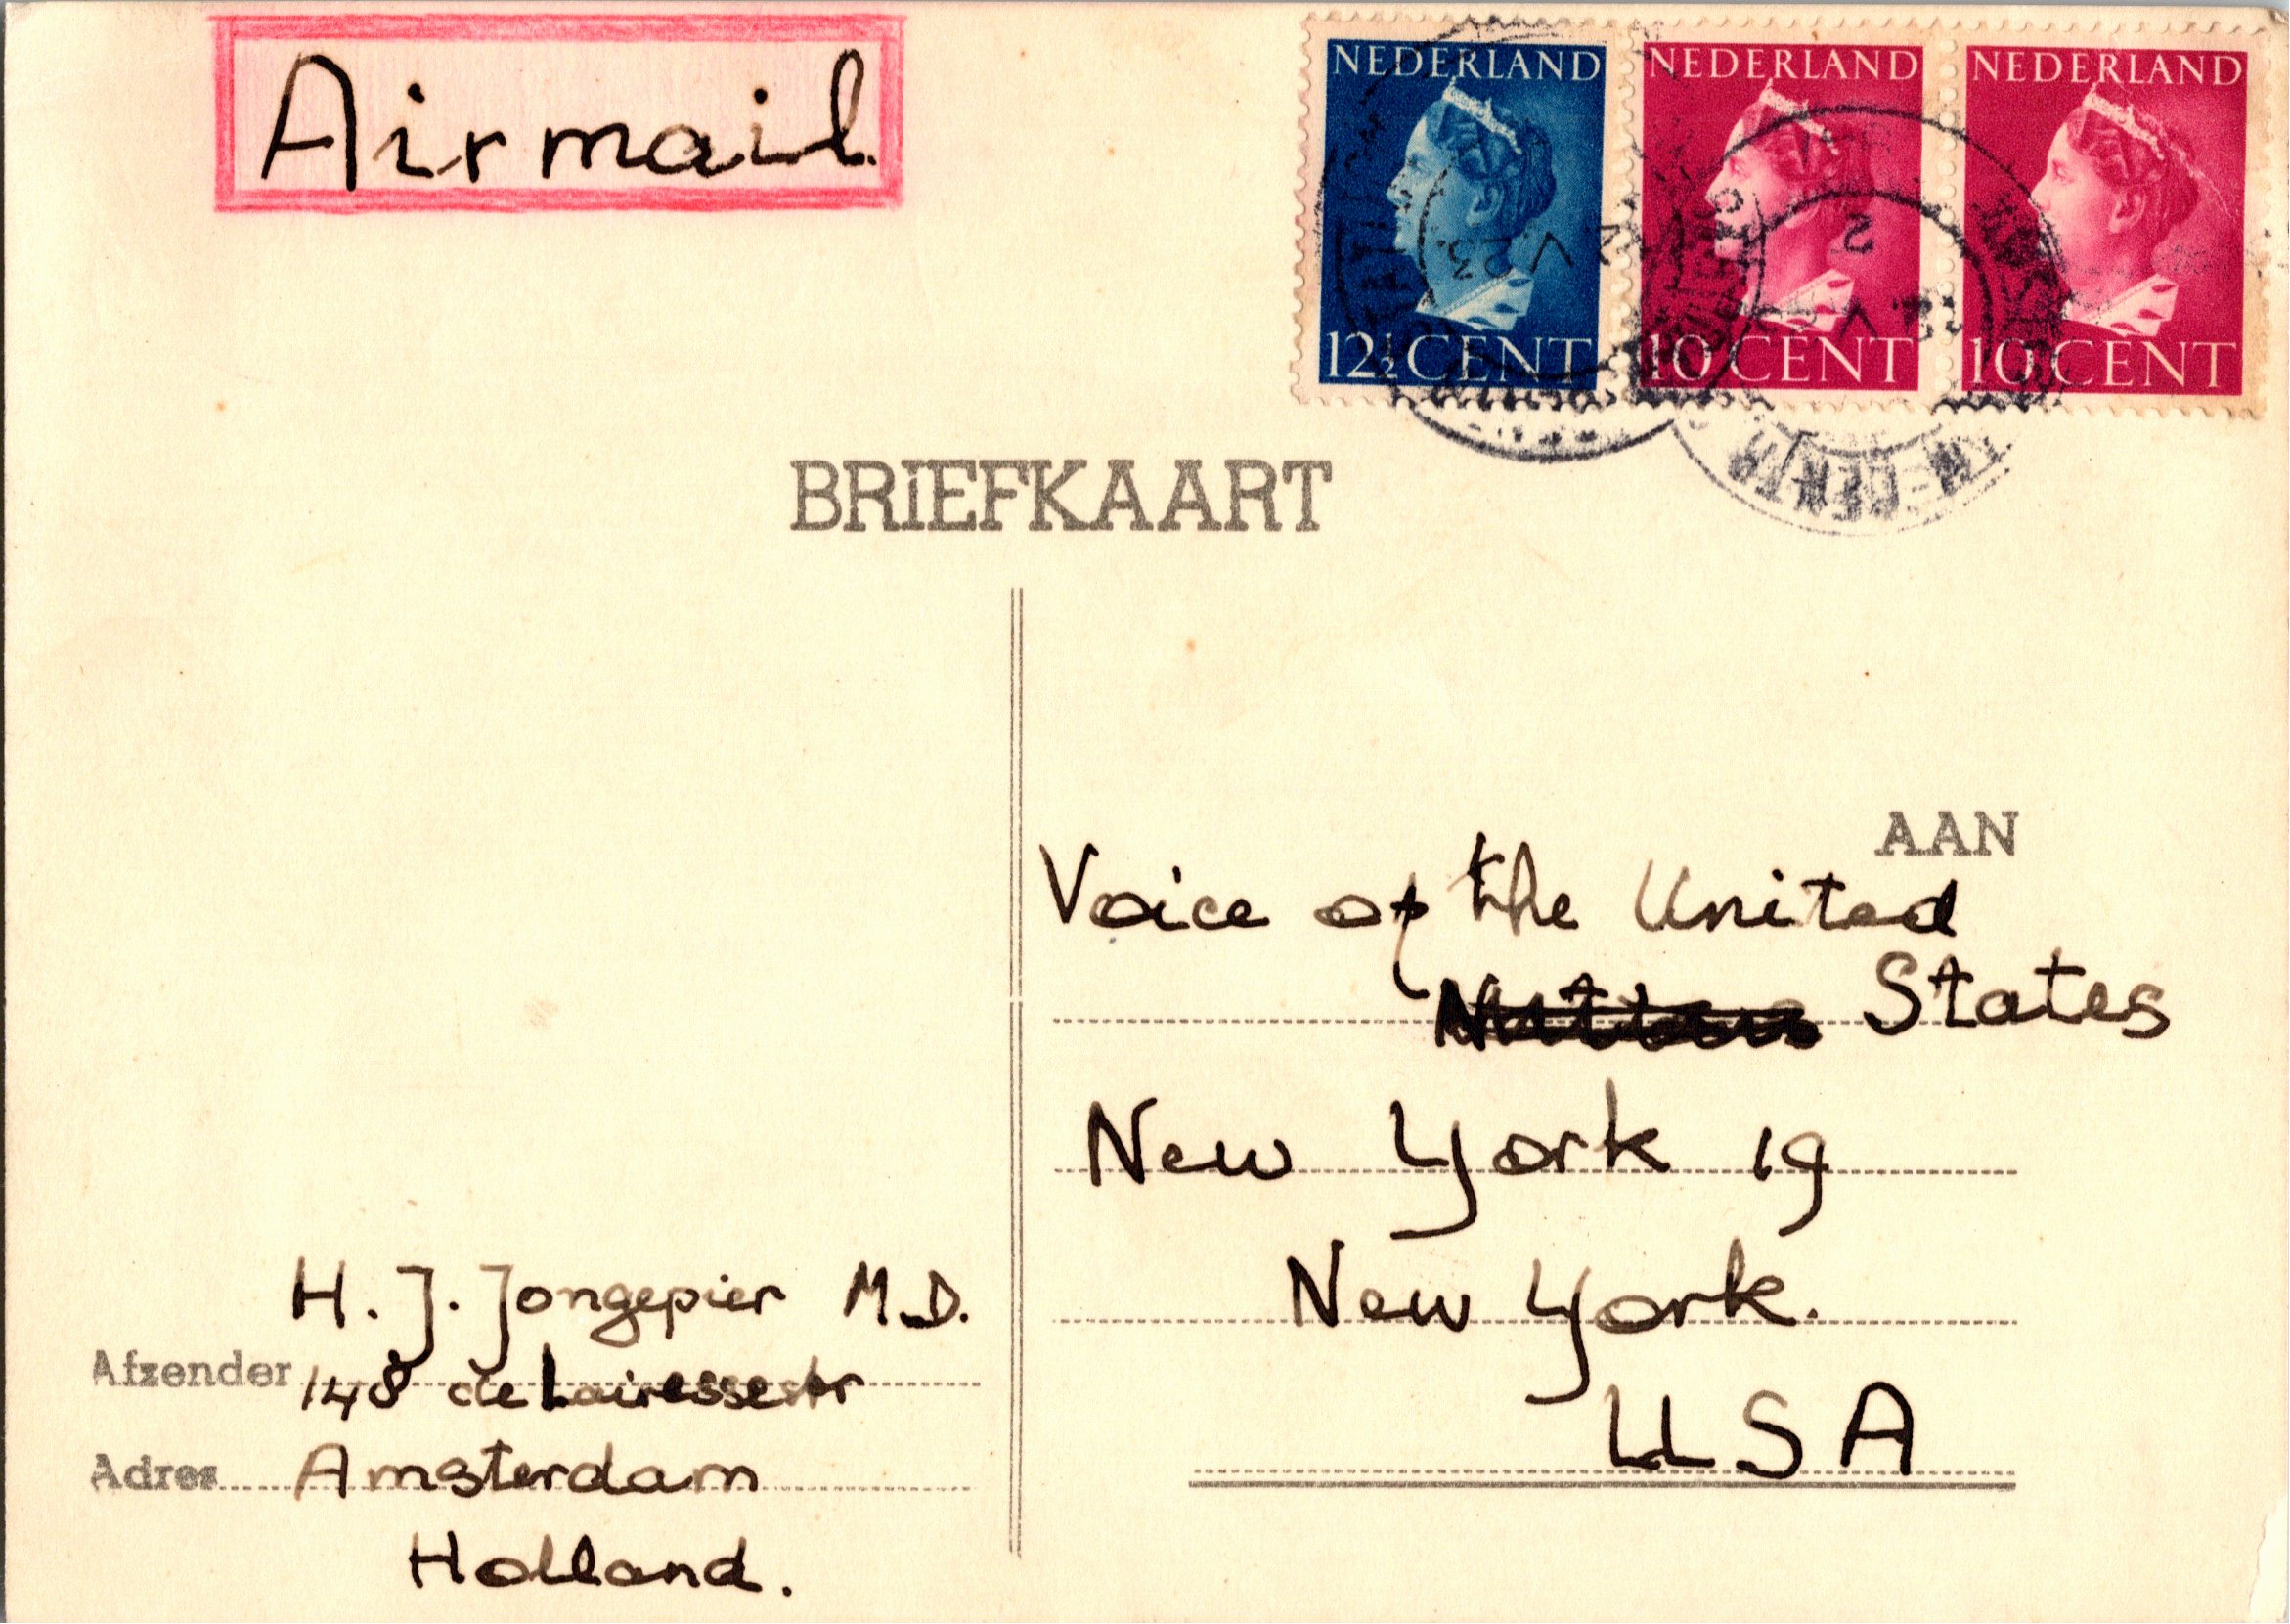 Airmail.
NEDERLAND
12½ CENT
NEDERLAND
10 CENT
NEDERLAND
10 CENT
BRIEFKAART
AAN
Voice of the United
States
New York 19
New York.
USA
H. J. Jongepier M.D.
Afzender 148 de Lairessestr
Adres Amsterdam
Holland.